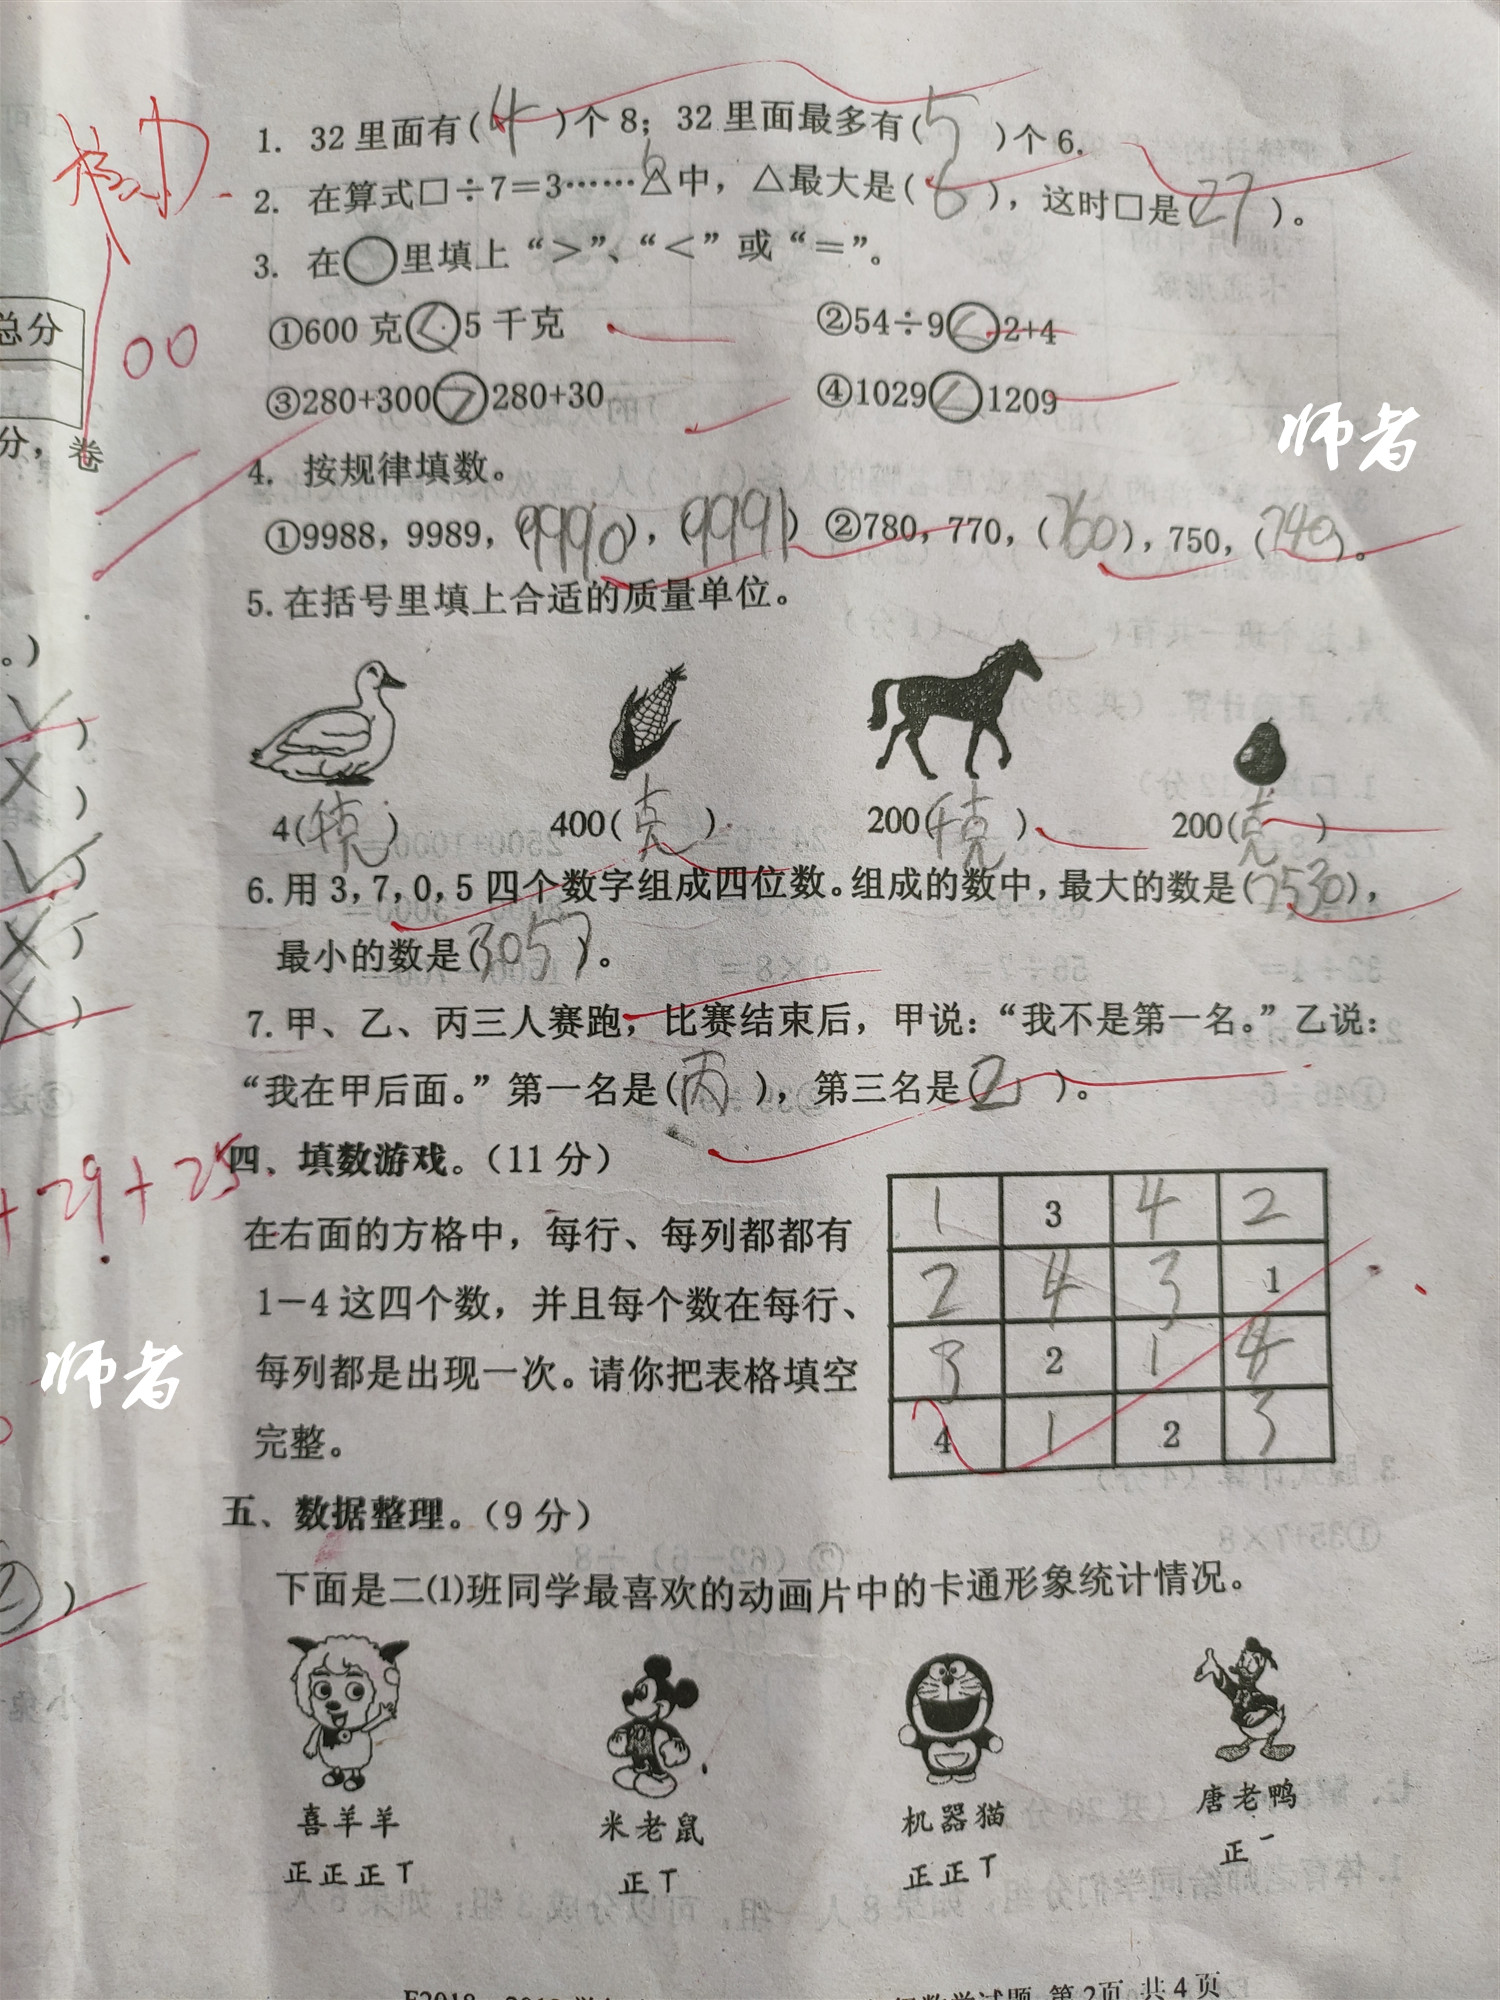 1. 32里面有(4)个8；32里面最多有(5)个6.
6
2. 在算式□÷7=3……△中，△最大是(6)，这时□是(27)。
3. 在○里填上“＞”、“＜”或“＝”。
总分
00
①600克<5千克 ②54÷9<2+4
③280+300>280+30 ④1029<1209
师者
分，卷
4. 按规律填数。
①9988，9989，(9990)，(9991) ②780，770，(760)，750，(740)。
5.在括号里填上合适的质量单位。
。)
√)
×)
√)
×)
×)
4(千克) 400(克) 200(千克) 200(克)
6.用3,7,0,5四个数字组成四位数。组成的数中，最大的数是(7530)，
最小的数是(3057)。
7.甲、乙、丙三人赛跑，比赛结束后，甲说：“我不是第一名。”乙说：
“我在甲后面。”第一名是(丙)，第三名是(乙)。
+29+25
四、填数游戏。（11分）
在右面的方格中，每行、每列都都有
1－4这四个数，并且每个数在每行、
每列都是出现一次。请你把表格填空
完整。
1 3 4 2
2 4 3 1
3 2 1 4
4 1 2 3
师者
②)
五、数据整理。（9分）
下面是二⑴班同学最喜欢的动画片中的卡通形象统计情况。
喜羊羊 米老鼠 机器猫 唐老鸭
正正正丅 正丅 正正丅 正一
数学试题 第2页 共4页